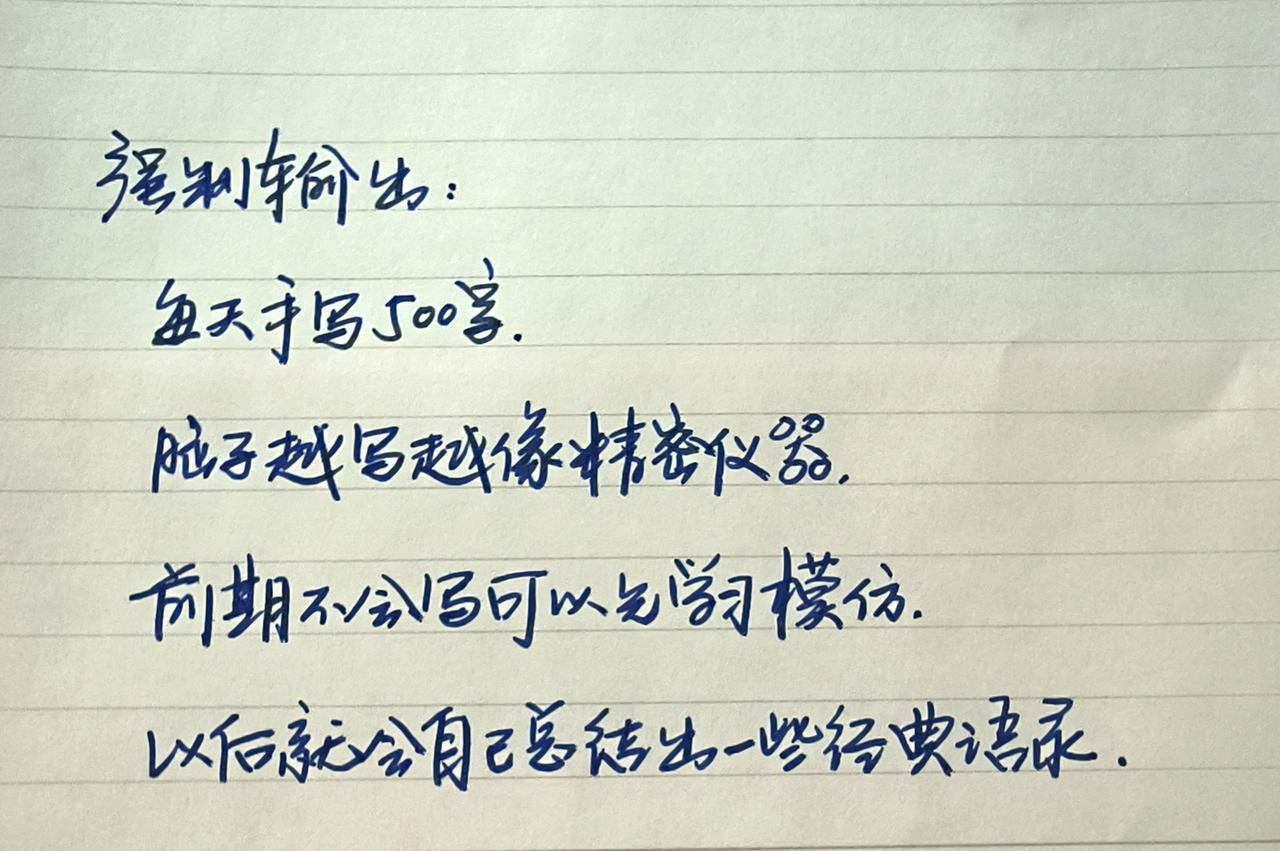 强制输出：
每天手写500字.
脑子越写越像精密仪器.
前期不会写可以先学习模仿.
以后就会自己总结出一些经典语录.